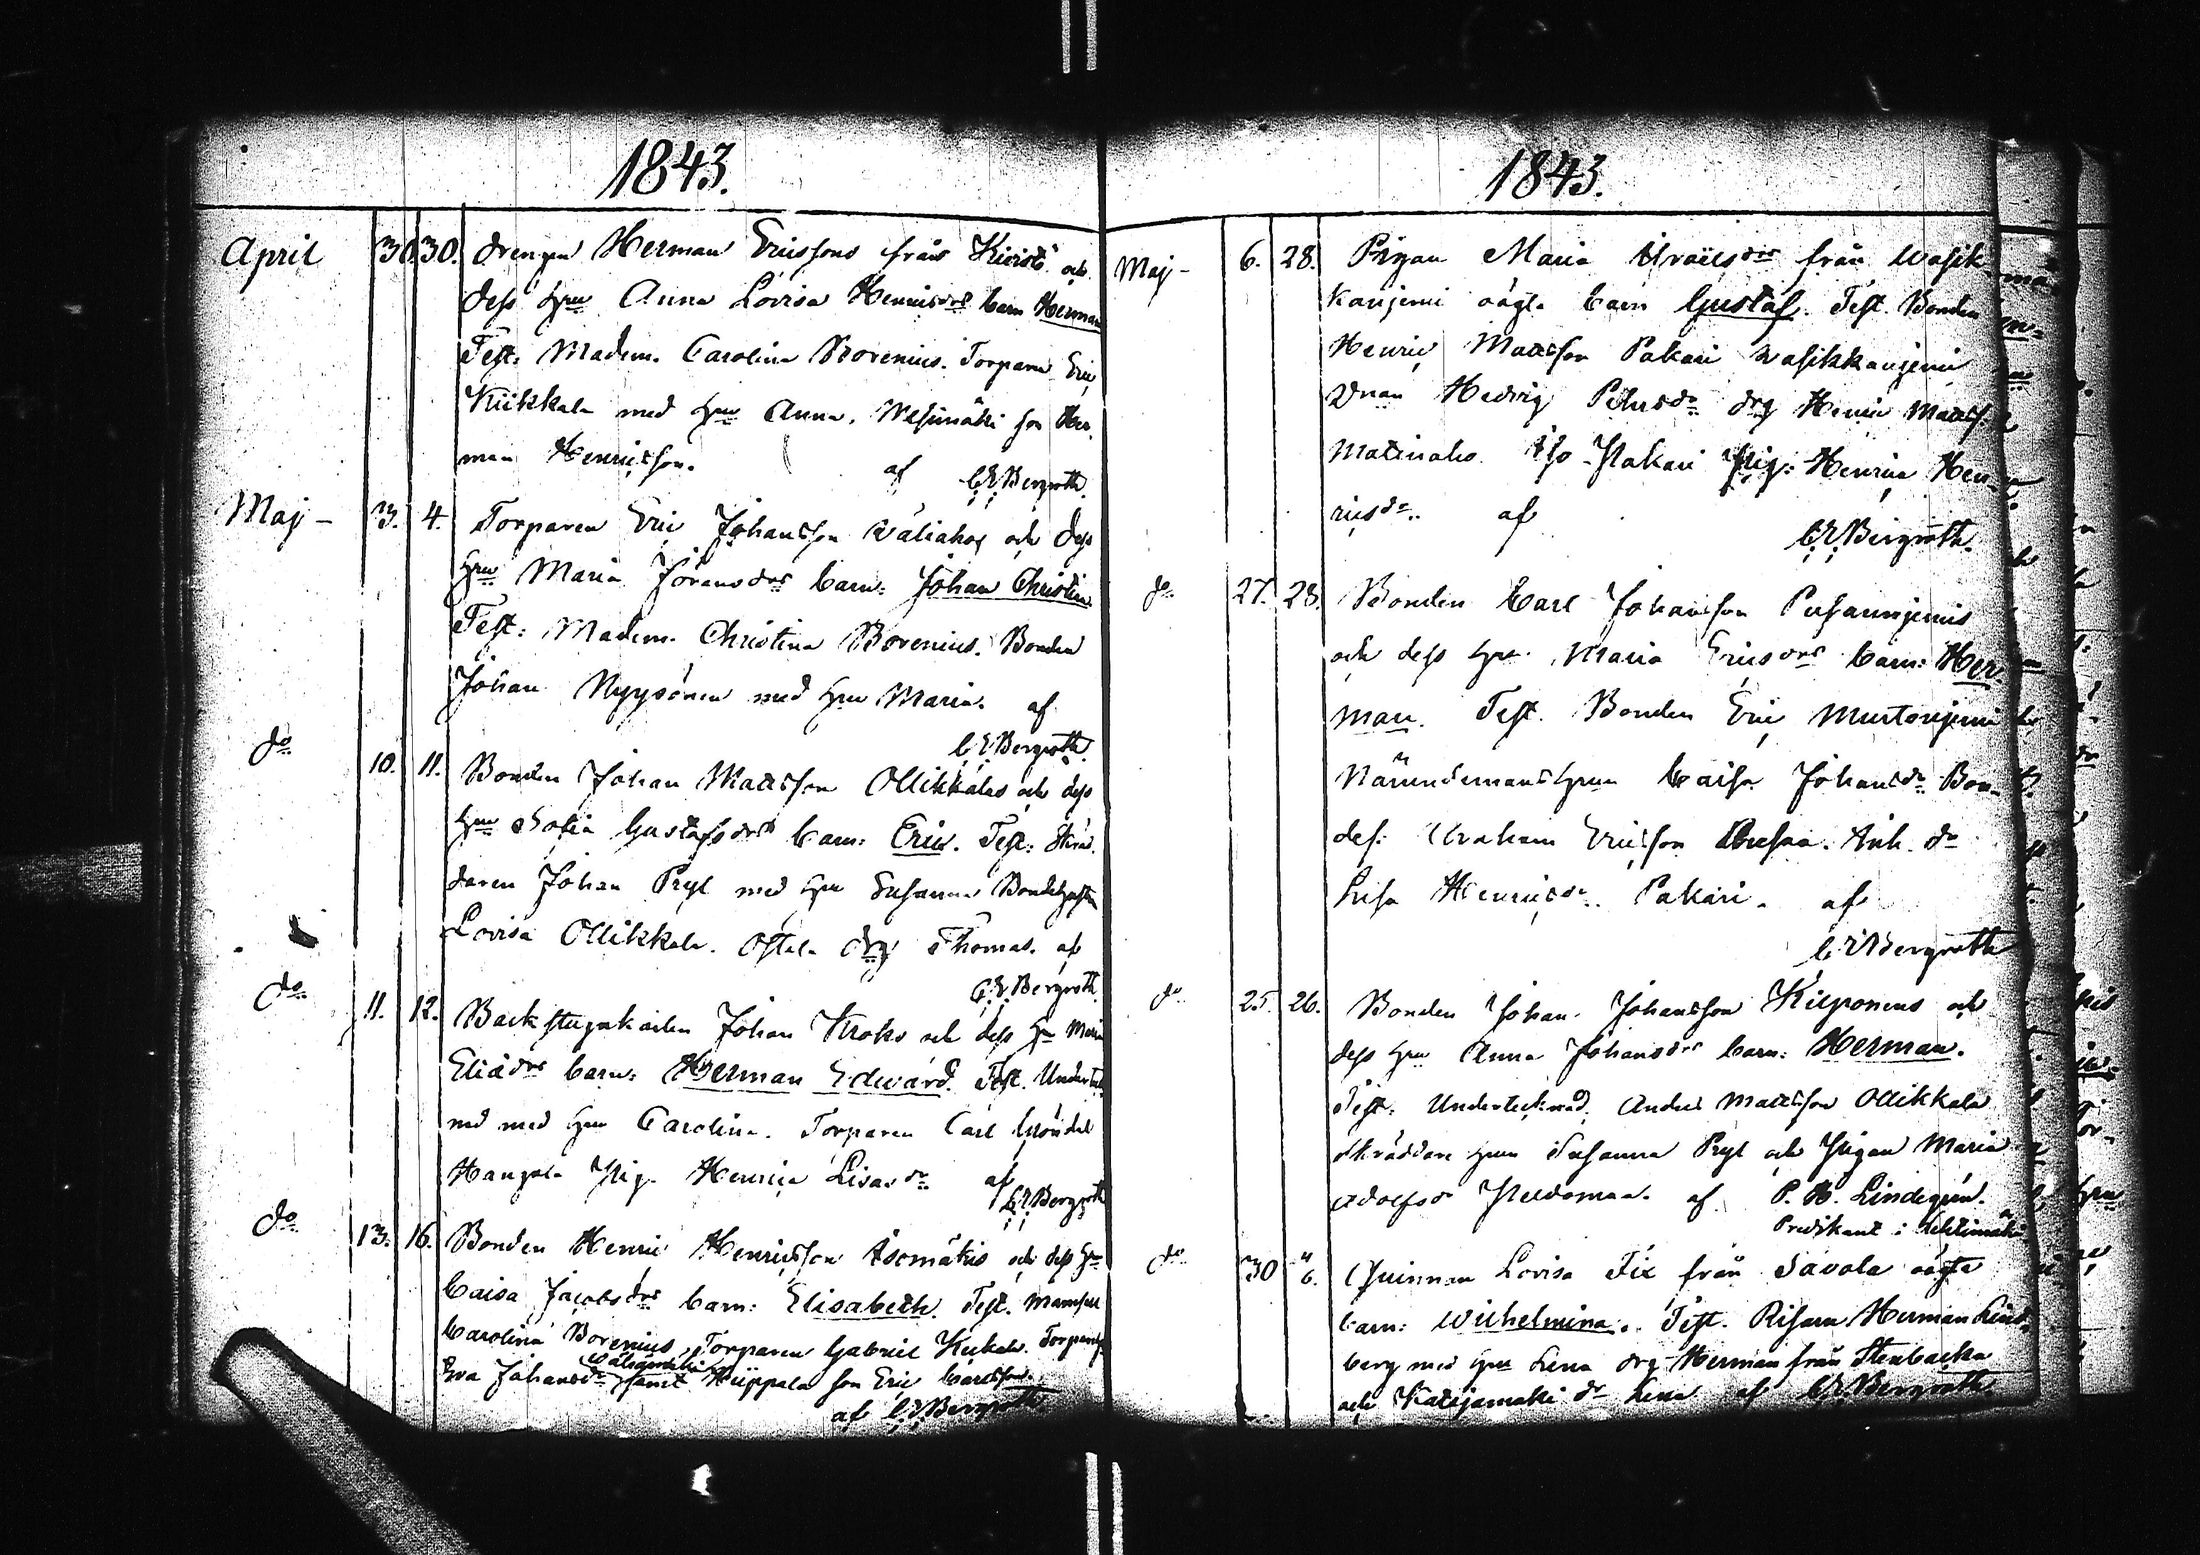 1843.
April 30. 30. Drengen Herman Ericssons från Kivistö och
dess Hru Anna Lovisa Henricsdrs barn Herman
Test: Madem. Carolina Borenius. Torparen Eric
Kiikkala med Hru Anna. Mesimäki son Her-
man Henricsson. af C.E. Bergroth.
Maj - 3. 4. Torparen Eric Johansson Väliahos och dess
Hru Maria Jöransdrs barn: Johan Christian
Test: Madem. Christina Borenius. Bonden
Johan Nyysönen med Hru Maria. af
C.E. Bergroth.
do 10. 11. Bonden Johan Mattsson Ollikkalas och dess
Hru Sofia Gustafsdrs barn: Eric. Test: Skräd-
daren Johan Pryl med Hru Susanna
Lovisa Ollikkala. drg Thomas. af
C.E. Bergroth.
do 11. 12. Backstugukarlen Johan Kroks och dess Hru Maria
Eliædrs barn: Herman Edward. Test. Underteck-
nad med Hru Carolina. Torparen Carl Gröndal
Pig. Henrica Lisasdr af
C.E. Bergroth
do 13. 16. Bonden Henric Henricsson Isomäkis och dess Hru
Caisa Jacobsdrs barn: Elisabeth. Test. Mamsell
Carolina Borenius, Torparen Gabriel
Eva Johansdr Välhämäki samt Hüppala son Eric Carlsson.
af C.E. Bergroth
1843.
Maj - 6. 28. Pigan Maria från Wasik-
kanjemi oägta barn Gustaf. Test. Bonden
Henric Mattsson Pakari Wasikkanjemi
Enkan Hedvig Pehrsdr drg Henric Mattss.
Matinaho. Iso-Pakari Pig: Henrica Hen-
ricsdr. af
C.E. Bergroth.
do 27. 28. Bonden Carl Johansson
och dess Hru Maria Ericsdrs barn: Her-
man. Test. Bonden Eric Murtonjemi
Nämndemans Hrun Caisa Johansdr Bon-
des: Abraham Ericsson
Lisa Henricsdr. Pakari. af
C.E. Bergroth
do 25. 26. Bonden Johan Johansson Kilponens och
dess Hru Anna Johansdrs barn: Herman.
Test: Undertecknad. Anders Mattsson Ollikkala
Skräddare Hrun Susanna Pryl och Pigan Maria
Adolfsdr af P. H. Lindegrén.
Predikant i
do 30 6. Qvinnan Lovisa Fix från Savola oägta
barn: Wilhelmina. Test. Herman Lind-
berg med Hru Lena drg Herman från Stenbacka
och Katajamäki dr Lena af C.E. Bergroth.